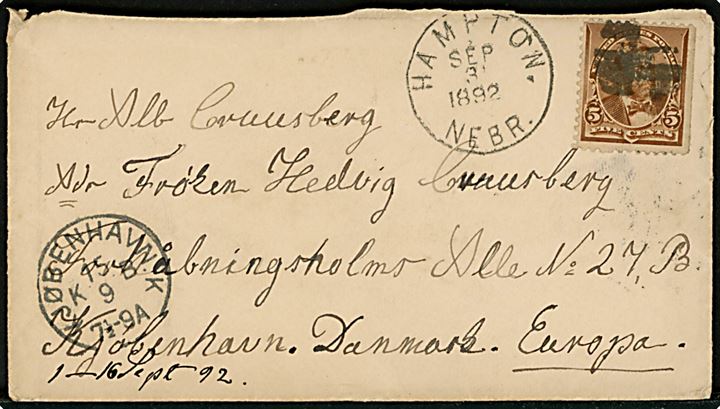 HAMPTON.
SEP
3
1892
NEBR.
5 5
FIVE CENTS
Hr Alb Cruusberg
Adr Frøken Hedvig Cruusberg
åbningsholms Alle No 27, B.
Kjøbenhavn. Danmark. Europa.
1 – 16 Sept 92.
KJØBENHAVN K
K B
9
7½-9A